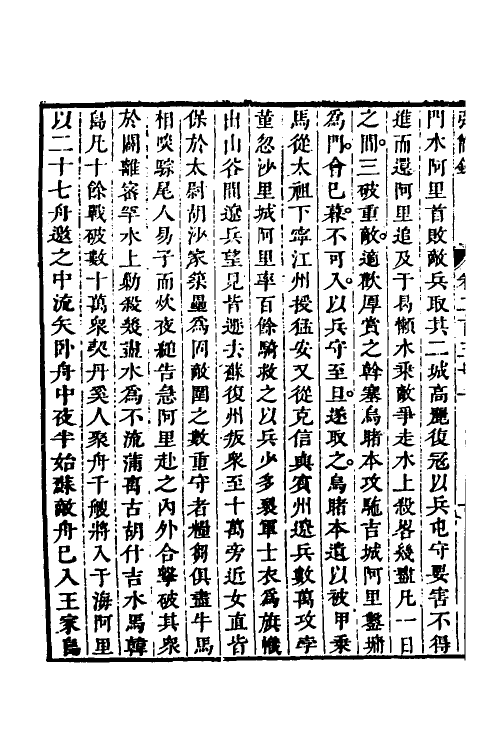 門水阿里首敗敵兵取其二城高麗復寇以兵屯守要害不得
進而還阿里追及于曷懶水乘敵爭走水上殺畧幾盡凡一日
之間三破重敵遒歡厚賞之幹塞烏睹本攻駞吉城阿里鑿墉
為門會已暮不可入以兵守至旦遂取之烏睹本遺以被甲乘
馬從太祖下寧江州授猛安又從克信輿賓州遼兵數萬攻孛
堇忽沙里城阿里率百餘騎救之以兵少多裂軍士衣為旗幟
出山谷間遼兵望見皆遁去蘇復州叛衆至十萬旁近女直皆
保於太尉胡沙家築壘為固敵圍之數重守者糧芻俱盡牛馬
相啖騣尾人易子而炊夜縋告急阿里赴之內外合擊破其衆
於闢離密罕水上勦殺幾盡水為不流蒲离古胡什吉水馬韓
島凡十餘戰破數十萬衆契丹奚人聚舟千艘將入于海阿里
以二十七舟邀之中流矢卧舟中夜半始蘇敵舟已入王家島